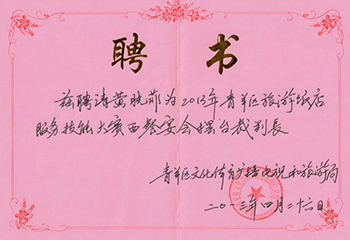 聘书
兹聘请黄晓菲为2013年青羊区旅游饭店
服务技能大赛西餐宴会摆台裁判长
青羊区文化体育广播电视和旅游局
二〇一三年四月二十六日